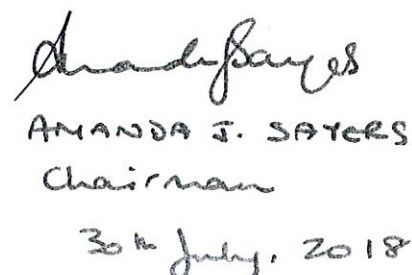 Amanda J Sayers
AMANDA J. SAYERS
Chairman
30th July, 2018